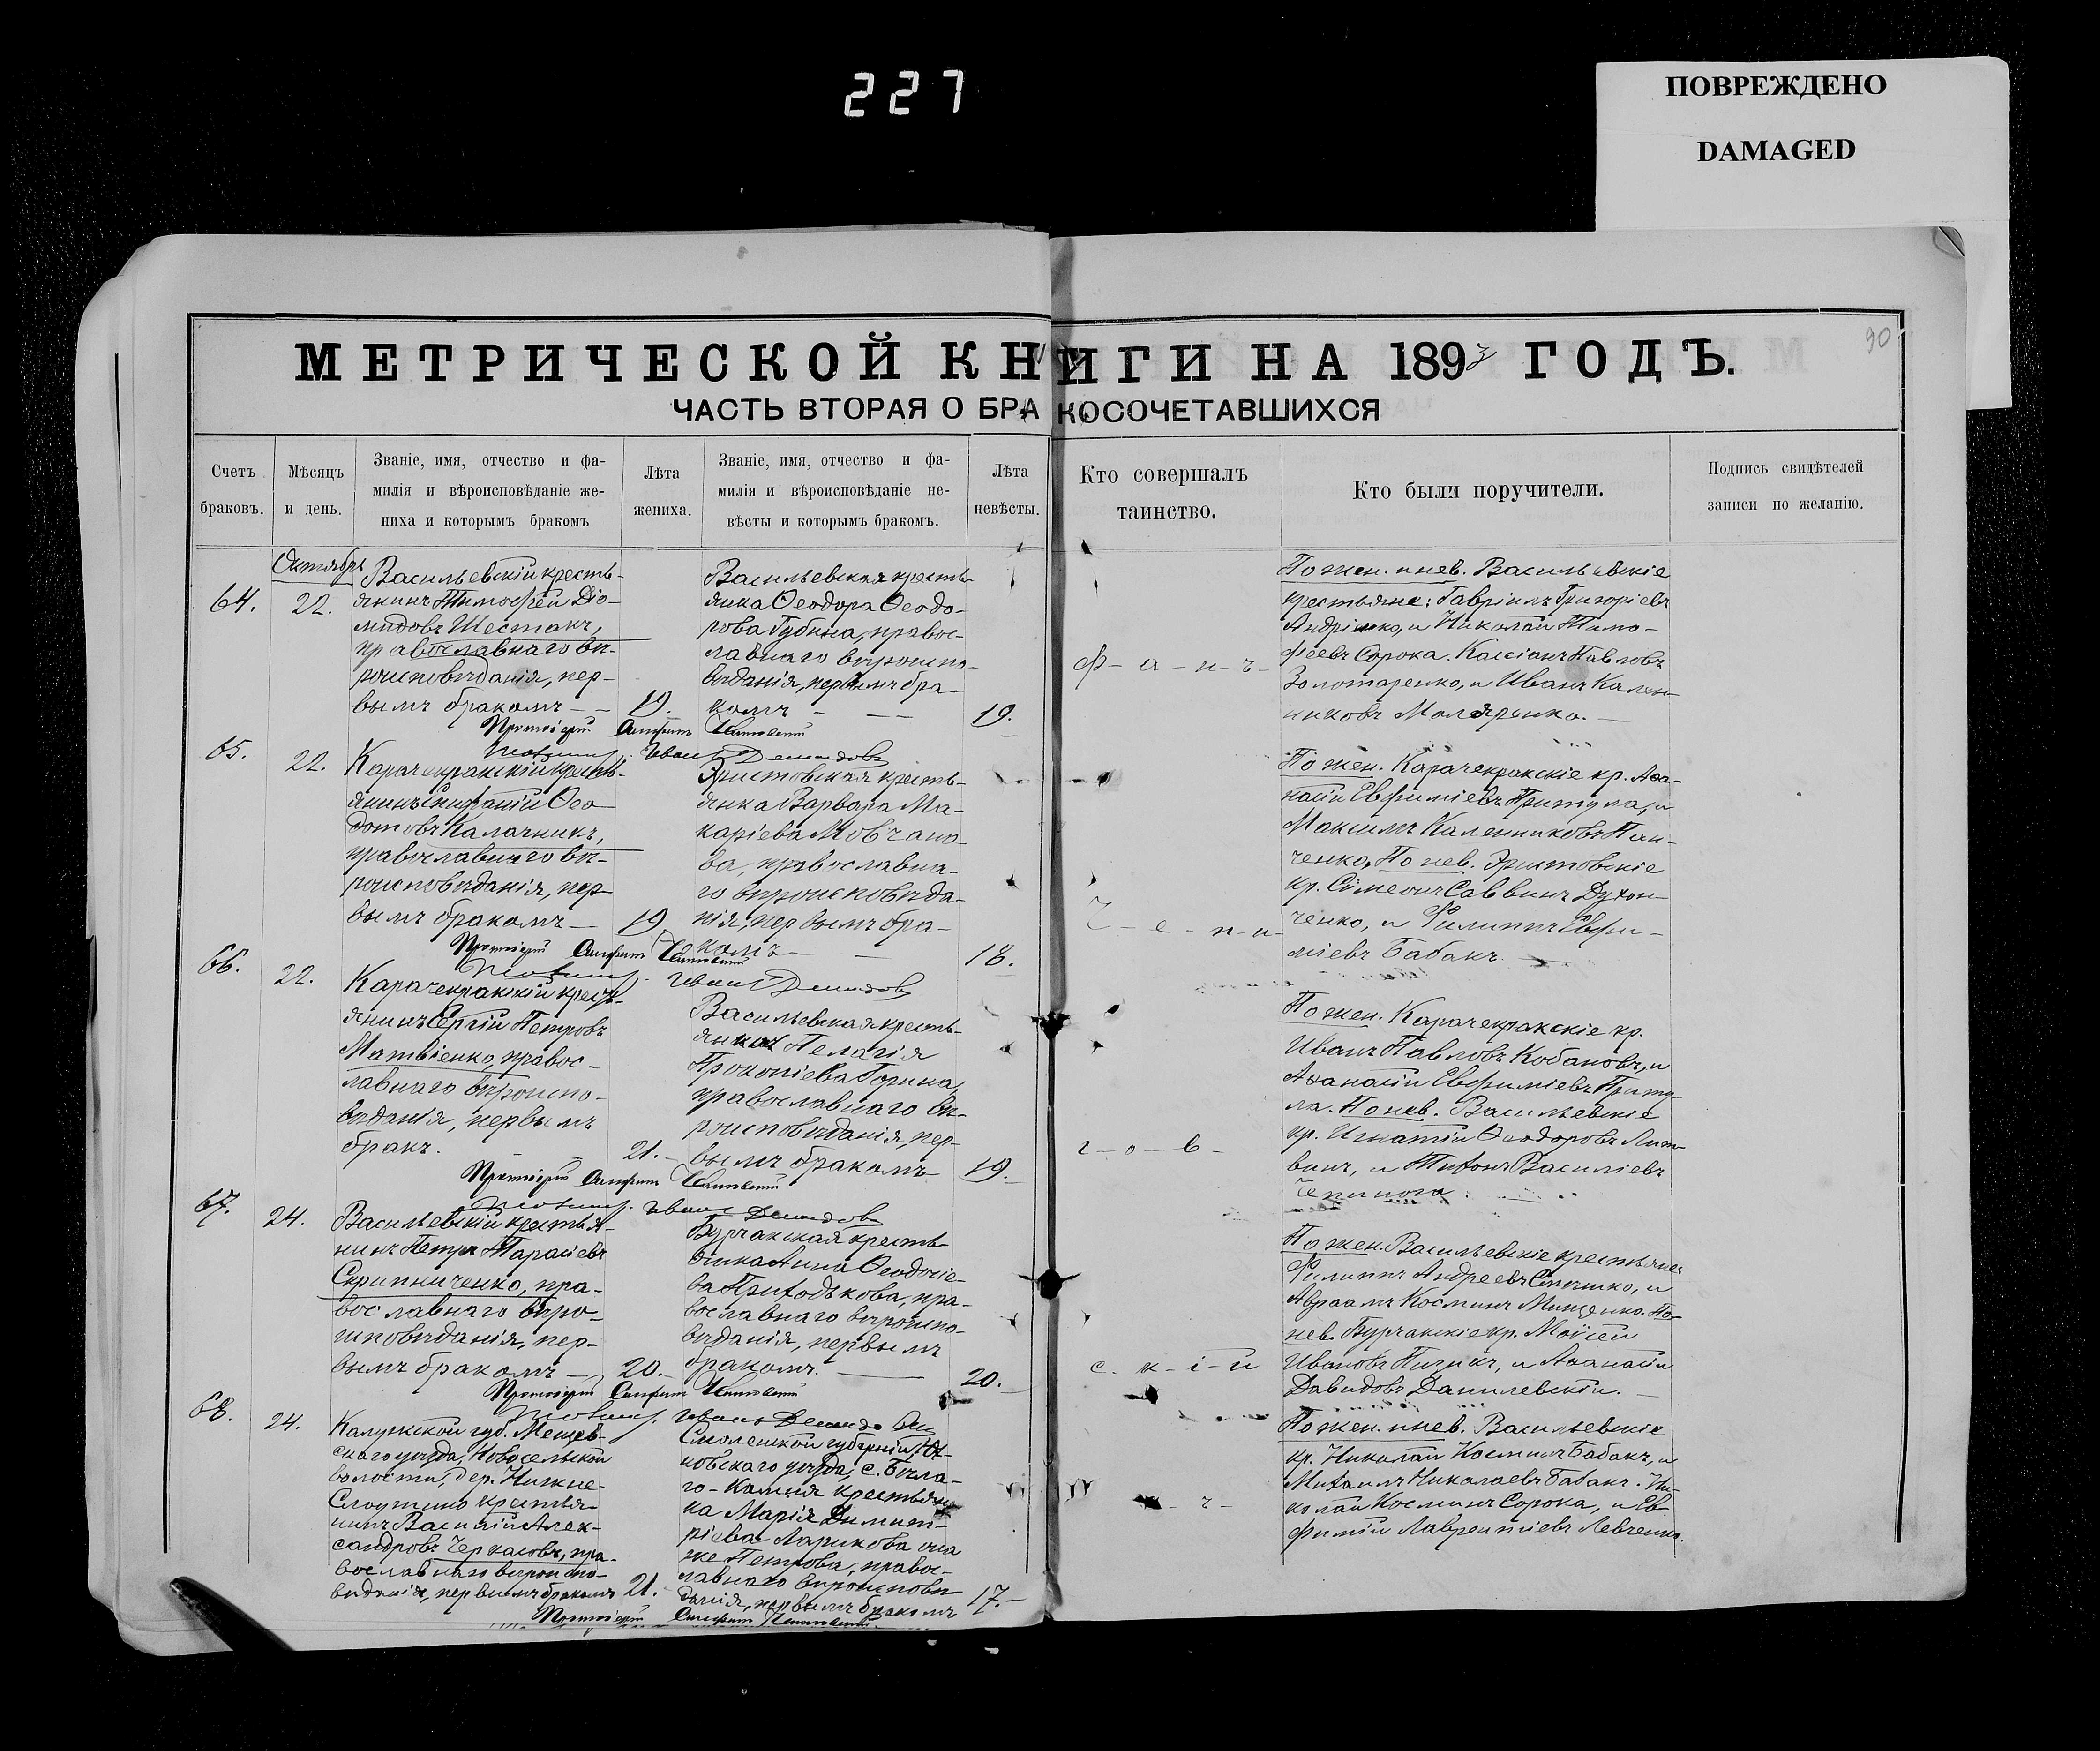 227
ПОВРЕЖДЕНО
DAMAGED
90
МЕТРИЧЕСКОЙ КНИГИ НА 1893 ГОДЪ.
ЧАСТЬ ВТОРАЯ О БРАКОСОЧЕТАВШИХСЯ
Счетъ браковъ.
Мѣсяцъ и день.
Званіе, имя, отчество и фа-
милія и вѣроисповѣданіе же-
ниха и которымъ бракомъ
Лѣта жениха.
Званіе, имя, отчество и фа-
милія и вѣроисповѣданіе не-
вѣсты и которымъ бракомъ.
Лѣта невѣсты.
Кто совершалъ таинство.
Кто были поручители.
Подпись свидѣтелей записи по желанію.
Октябрь
64.
22.
Васильевскій кресть-
янинъ Тимоѳей Діо-
мидовъ Шестакъ,
православнаго вѣ-
роисповѣданія, пер-
вымъ бракомъ — —
19.
Васильевская кресть-
янка Ѳеодора Ѳеодо-
рова Губина, правос-
лавнаго вѣроиспо-
вѣданія, первымъ бра-
комъ — —
19.
ф - а - н - ъ -
По жен. и нев. Васильевскіе
крестьяне: Гавріилъ Григоріевъ
Андріенко, и Николай Тимо-
феевъ Сорока. Кассіанъ Павловъ
Золотаренко, и Иванъ Кален-
никовъ Моляренко. —
Протоіерей
Иванъ Демидовъ
65.
22.
Карачекракскій кресть-
янинъ Ѳео-
дотовъ Калачникъ,
православнаго вѣ-
роисповѣданія, пер-
вымъ бракомъ —
19
Эристовская кресть-
янка Варвара Ма-
каріева Мовчано-
ва, православна-
го вѣроисповѣда-
нія, первымъ бра-
комъ —
18.
Ч - е - п - и -
По жен. Карачекракскіе кр. Аѳа-
насій Евфиміевъ Притула, и
Максимъ Каленниковъ Пан-
ченко, По нев. Эристовскіе
кр. Симеонъ Саввинъ Духон-
ченко, и Филиппъ Евфи-
міевъ Бабакъ. —
Протоіерей
Иванъ Демидовъ
66.
22.
Карачекракскій кресть-
янинъ Сергій Петровъ
Матвіенко, правос-
лавнаго вѣроиспо-
вѣданія, первымъ
бракъ.
21. -
Васильевская кресть-
янка Пелагія
Прокопіева Горина,
православнаго вѣ-
роисповѣданія, пер-
вымъ бракомъ
19.
г - о - в -
По жен. Карачекракскіе кр.
Иванъ Павловъ Кобановъ, и
Аѳанасій Евфиміевъ Приту-
ла. По нев. Васильевскіе
кр. Игнатій Ѳеодоровъ Лит-
винъ, и Тихонъ Васильевъ
Чепинога.
Протоіерей
Иванъ Демидовъ
67.
24.
Васильевскій крестья-
нинъ Петръ Тарасіевъ
Скрипниченко, пра-
вославнаго вѣро-
исповѣданія, пер-
вымъ бракомъ —
20.
Бурчакская кресть-
янка Анна Ѳеодосіе-
ва Приходькова, пра-
вославнаго вѣроиспо-
вѣданія, первымъ
бракомъ. —
20.
с - к - і - й
По жен. Васильевскіе крестьяне
Филиппъ Андреевъ , и
Авраамъ Косминъ Мищенко. По
нев. Бурчакскіе кр. Моисей
Ивановъ , и Аѳанасій
Давидовъ Данилевскій. —
Протоіерей
Иванъ Демидовъ
68.
24.
Калужской губ. Мещов-
скаго уѣзда, Новосельской
волости, дер. Нижне-
крестья-
нинъ Василій Алек-
сандровъ Черкасовъ, пра-
вославнаго вѣроиспо-
вѣданія, первымъ бракомъ
21.
Смоленской губерніи, Юх-
новскаго уѣзда, с. Бѣла-
го-Камня крестьян-
ка Марія Димит-
ріева Ларикова она
же Петрова, правос-
лавнаго вѣроисповѣ-
данія, первымъ бракомъ
17. -
- ъ -
По жен. и нев. Васильевскіе
кр. Николай Косминъ Бабакъ, и
Михаилъ Николаевъ Бабакъ. Ни-
колай Косминъ Сорока, и Ев-
фимій Лаврентіевъ Левченко.
Протоіерей